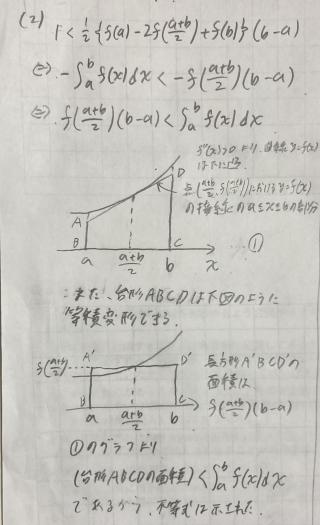 (2) F < 1/2 {f(a) - 2f((a+b)/2) + f(b)} (b-a)
⇔ -∫_a^b f(x)dx < -f((a+b)/2)(b-a)
⇔ f((a+b)/2)(b-a) < ∫_a^b f(x)dx
f''(x)>0 より、曲線 y=f(x)
は下に凸
点((a+b)/2, f((a+b)/2))における y=f(x)
の接線の a≦x≦b の部分
A
D
B
C
a
(a+b)/2
b
x
①
また、台形ABCDは下図のように
等積変形できる。
f((a+b)/2)
A'
D'
B
C
a
(a+b)/2
b
長方形A'BCD'の
面積は
f((a+b)/2)(b-a)
①のグラフより
(台形ABCDの面積) < ∫_a^b f(x)dx
であるから、不等式は示された。